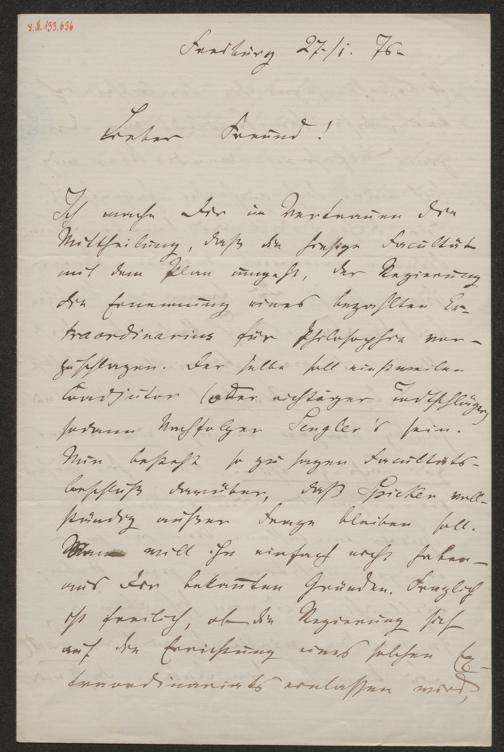 Freiburg 27./1. 76.
Lieber Freund!
Ich mache Dir im Vertrauen die
Mittheilung, daß die hiesige Facultät
mit dem Plan umgeht, der Regierung
die Ernennung eines bezahlten Ex-
traordinarius für Philosophie vor-
zuschlagen. Derselbe soll einstweilen
Coadjutor (oder richtiger Todtschläger)
sodann Nachfolger Sengler's sein.
Nun besteht so zu sagen Facultäts-
beschluß darüber, daß Spicker voll-
ständig außer Frage bleiben soll.
Man will ihn einfach nicht haben –
aus Dir bekannten Gründen. Fraglich
ist freilich, ob die Regierung sich
auf die Errichtung eines solchen Ex-
traordinariats einlassen wird,